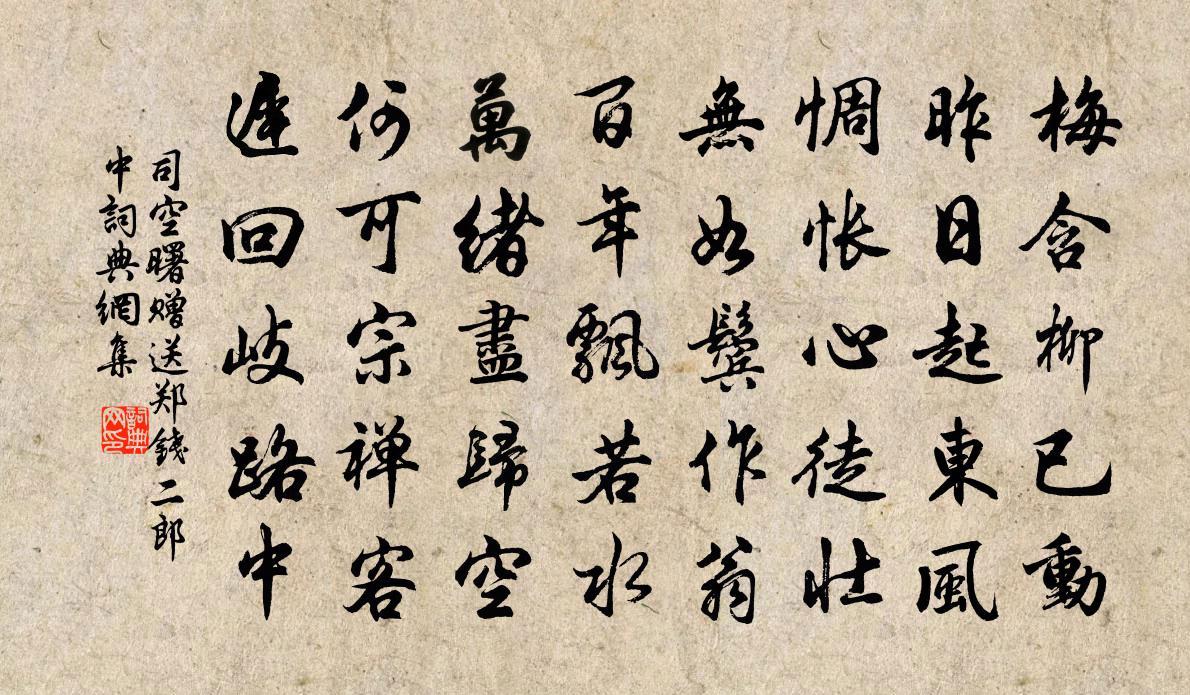 梅含柳已動
昨日起東風
惆怅心徒壯
無如鬢作翁
百年飄若水
萬緒盡歸空
何可宗禅客
遲回歧路中
司空曙赠送郑錢二郎
中詞典網集
詞典网印